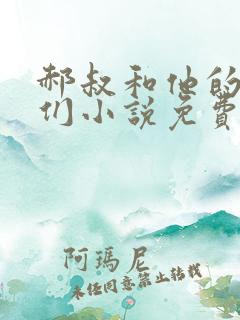 郝叔和他的
们小说免費
阿瑪尼
未经同意禁止转载